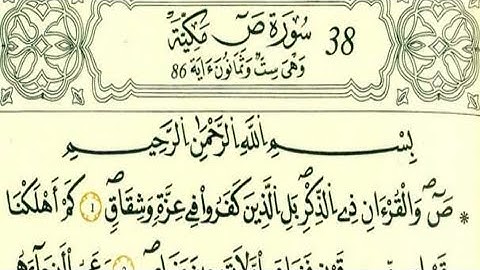 سُورَةُ صٓ مَكِّيَّة 38
وَهْىَ سِتٌّ وَثَمَانُونَ ءَايَة 86
بِسْمِ اِ۬للَّهِ اِ۬لرَّحْمَٰنِ اِ۬لرَّحِيمِ
* صٓ وَالْقُرْءَانِ ذِے اِ۬لذِّكْرِ بَلِ اِ۬لذِينَ كَفَرُواْ فِے عِزَّةٖ وَشِقَاقٖ ١ كَمَ اَهْلَكْنَا